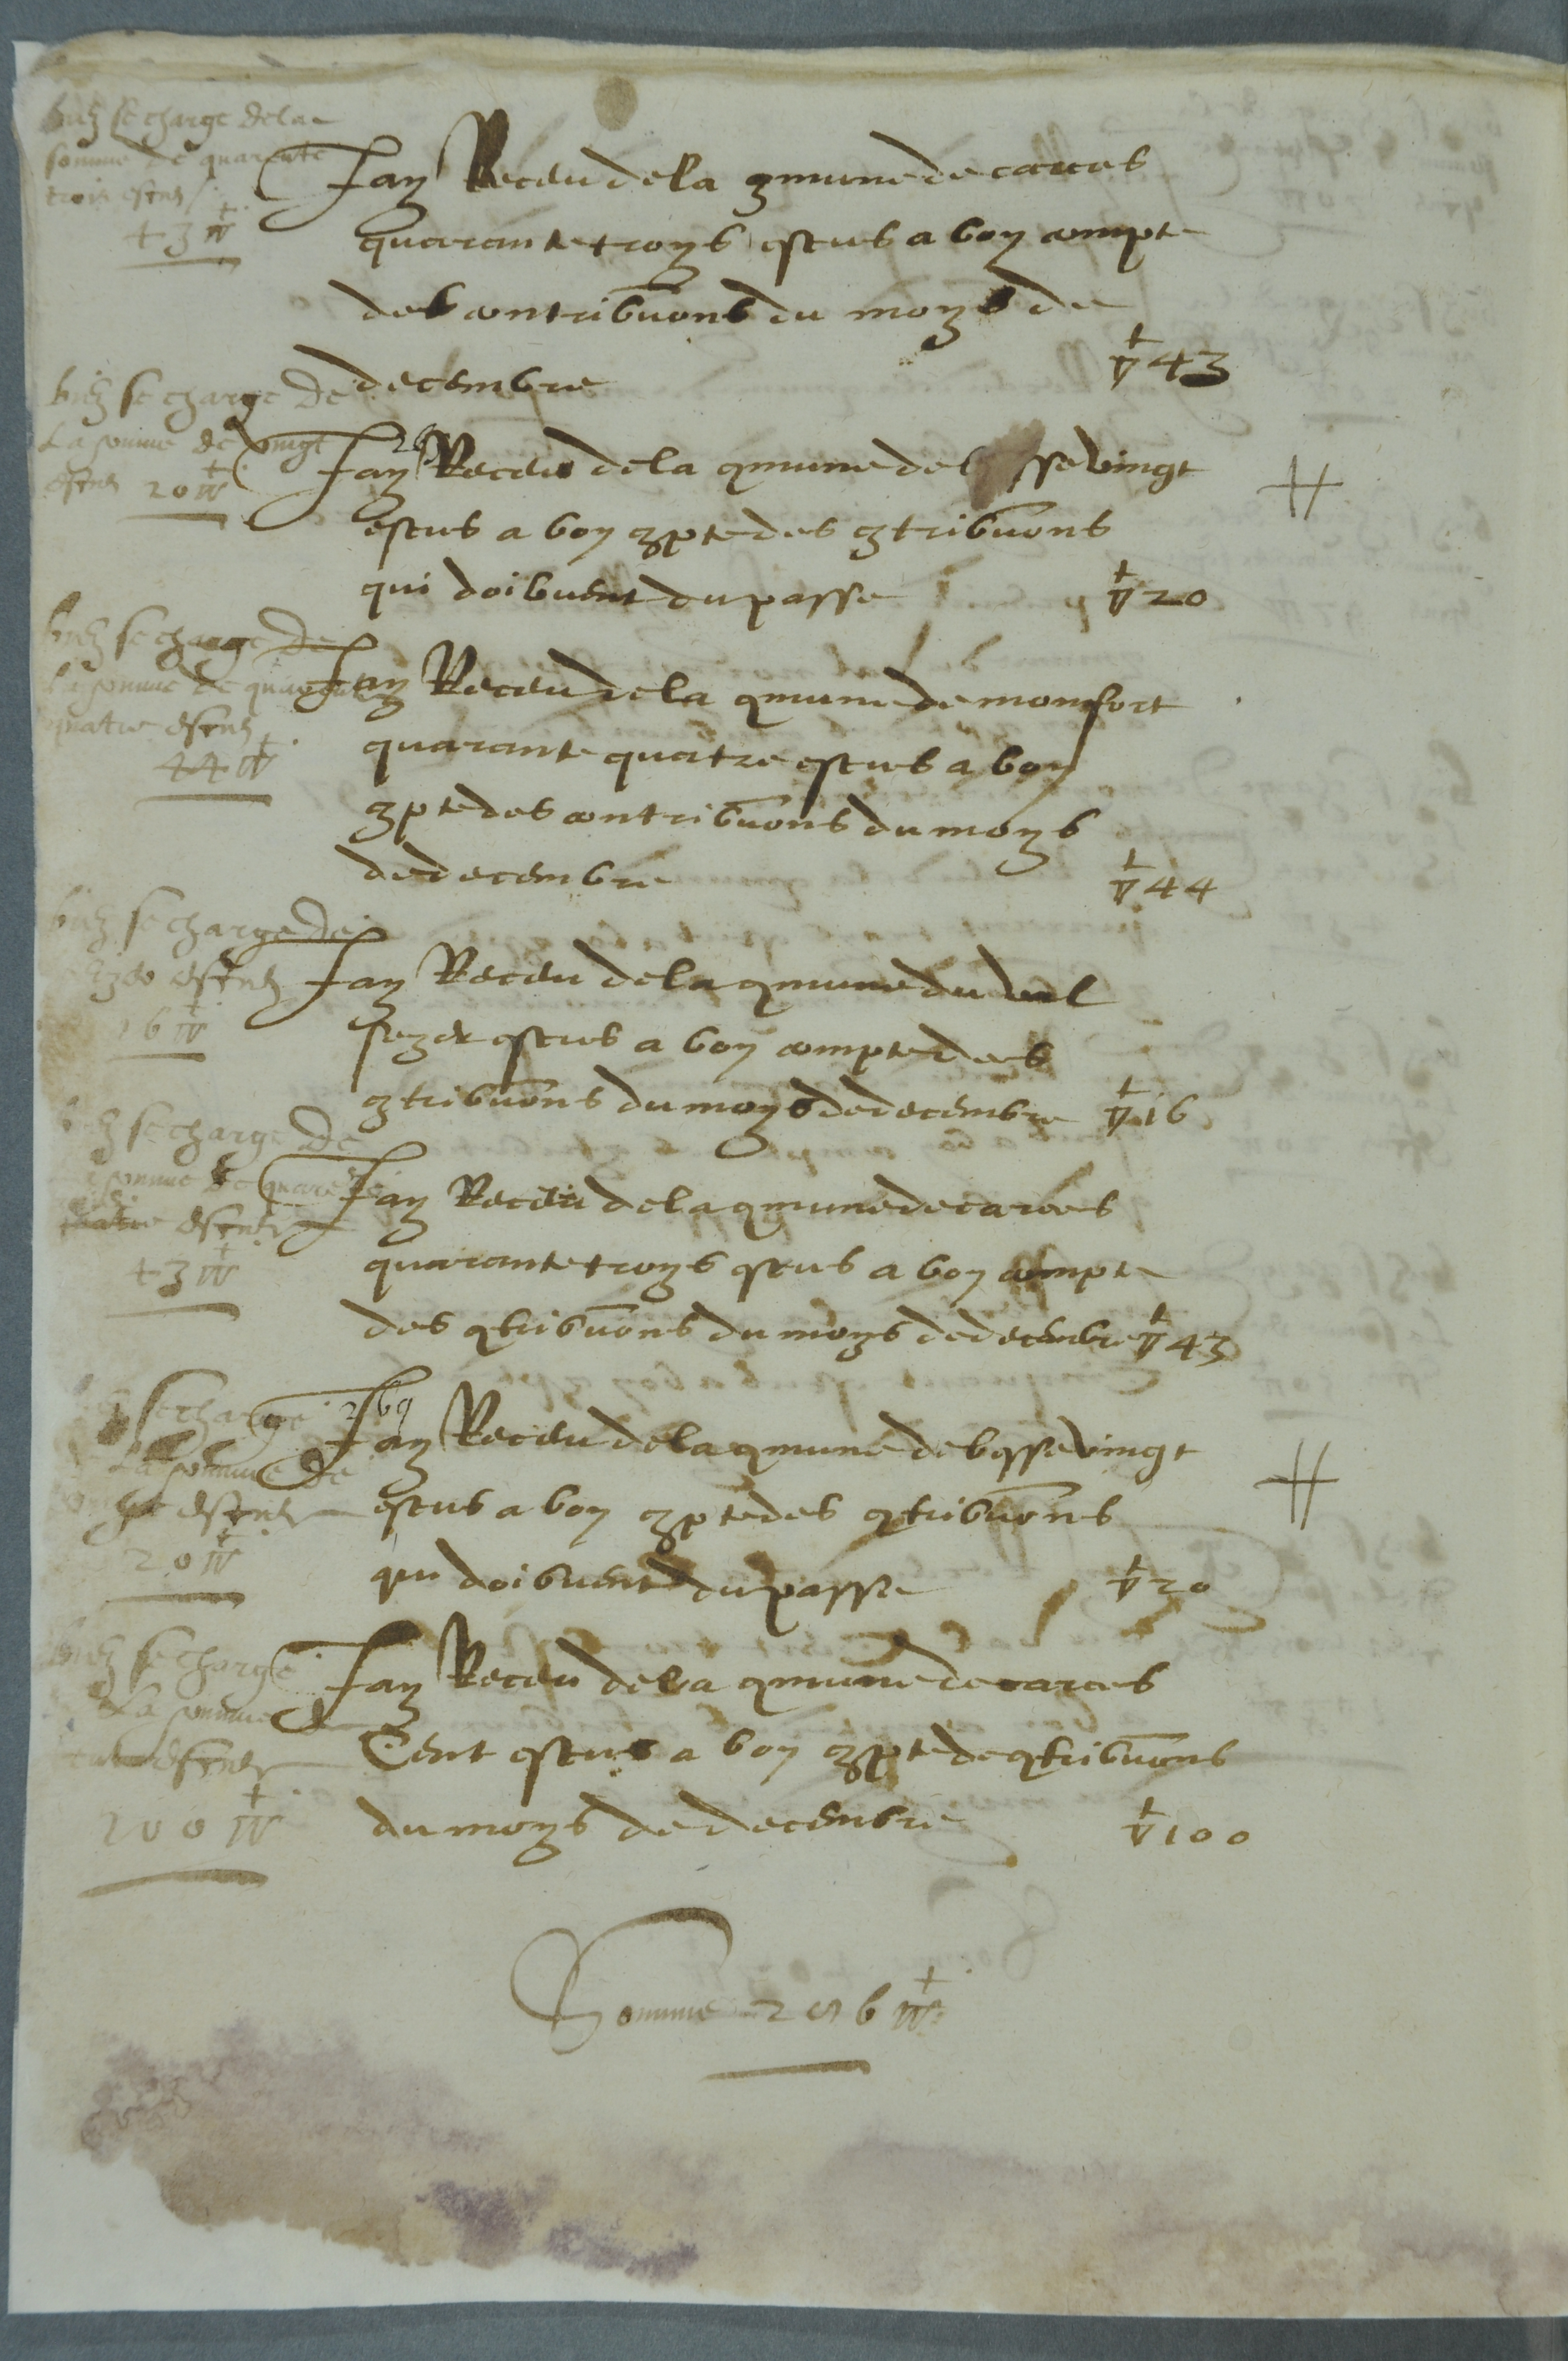 se charge de la
somme de quarante
trois escus
43 ▽
Jay Receu de la 9mune de carces
quarante troys escus a bon compte
des contribuons du moys de
decembre ▽ 43
se charge de
La somme de vingt
escus 20 ▽
Jay Receu de la 9mune de sse vingt
escus a bon 9pte des 9tribuons
qui doibuent du passe ▽ 20
se charge de
la somme de quarante
quatre escus
44 ▽
Jay Receu de la 9mune de monfort
quarante quatre escus a bon
9pte des contribuons du moys
de decembre ▽ 44
se charge de
escus
16 ▽
Jay Receu de la 9mune du val
seze escus a bon compte des
9tribuons du moys de decembre ▽ 16
se charge de
la somme de quarante
escus
43 ▽
Jay Receu de la 9mune de carces
quarante troys escus a bon compte
des 9tribuons du moys de decembre ▽ 43
se charge
La somme de
escus
20 ▽
Jay Receu de la 9mune de bysse vingt
escus a bon 9pte des 9tribuons
qui doibuent du passe ▽ 20
se charge
La somme de
escus
100 ▽
Jay Receu de la 9mune de carces
Cent escus a bon 9pte de 9tribuons
du moys de decembre ▽ 100
Somme 286 ▽